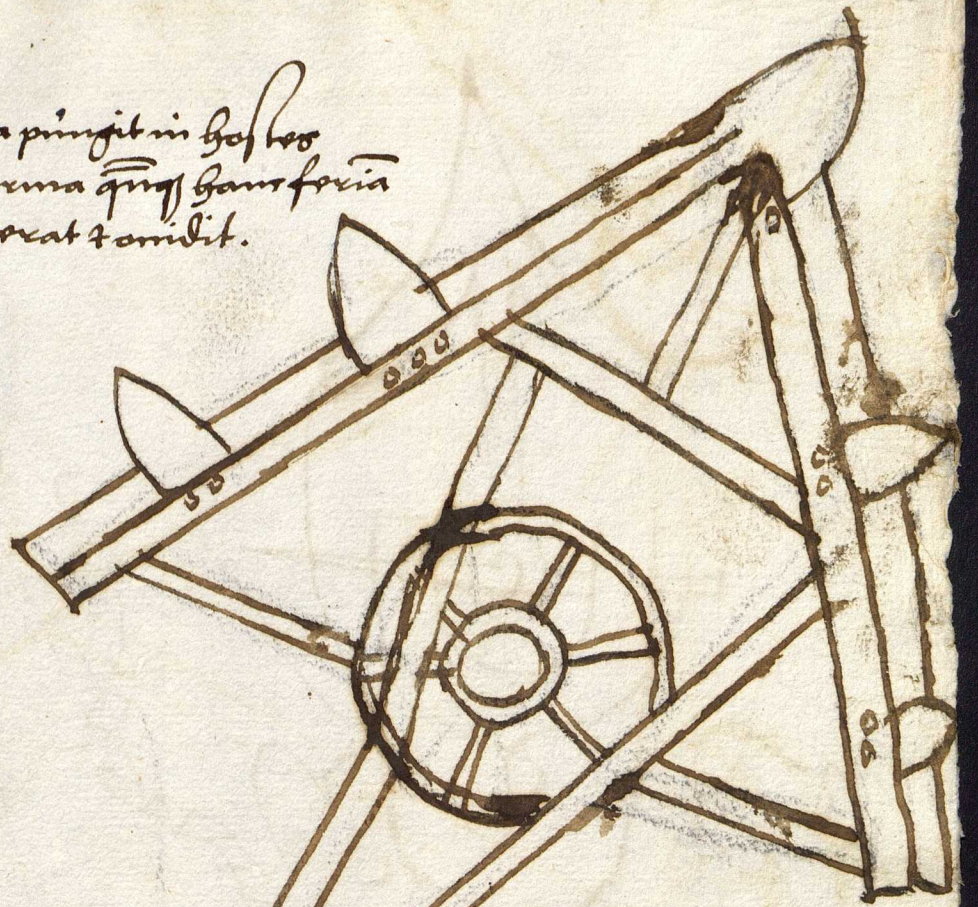 a pungit in hostes
rma qn̄q hanc feriā
erat & occidit.